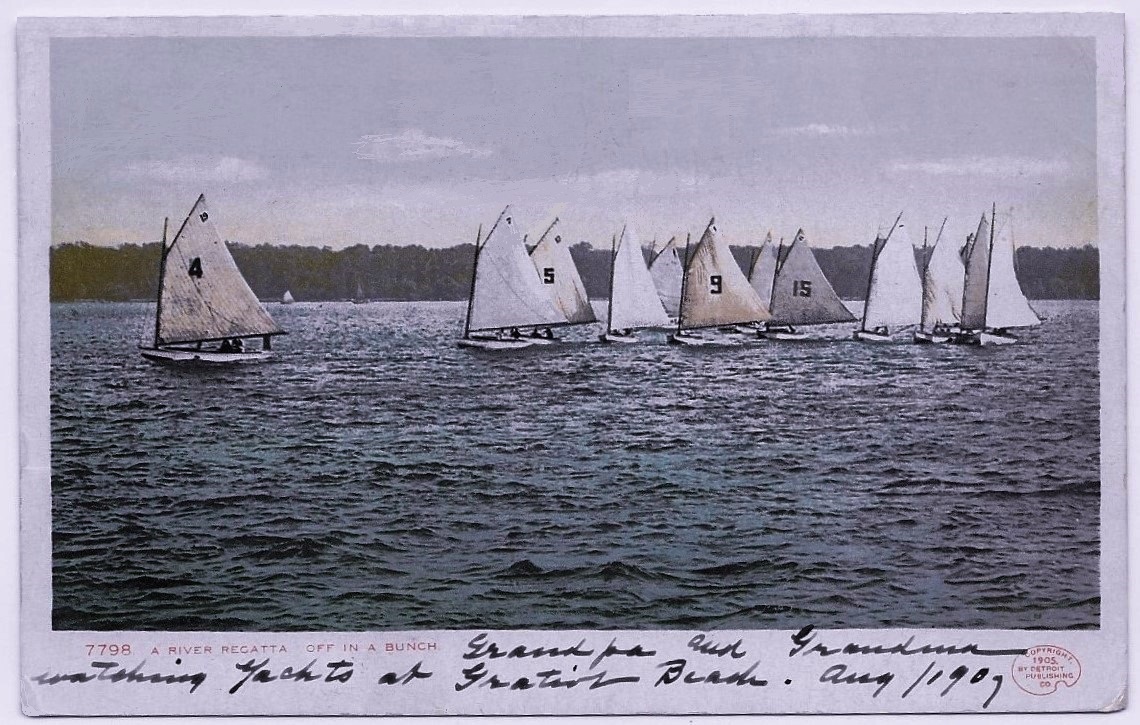 4
5
9
15
7798 A RIVER REGATTA OFF IN A BUNCH.
Grandpa and Grandma
watching Yachts at Gratiot Beach. Aug/1907
COPYRIGHT,
1905,
BY DETROIT
PUBLISHING
CO.